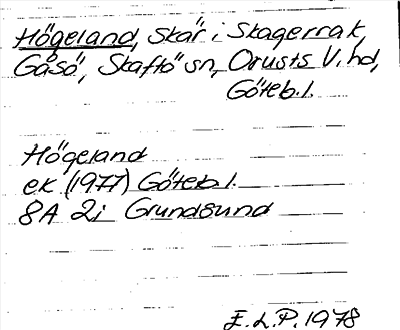 Högeland, skär i Skagerrak,
Gåsö, Skaftö sn, Orusts V. hd,
Göteb.l.
Högeland
ek (1977) Göteb.l.
8A 2i Grundsund
E.L.P. 1978